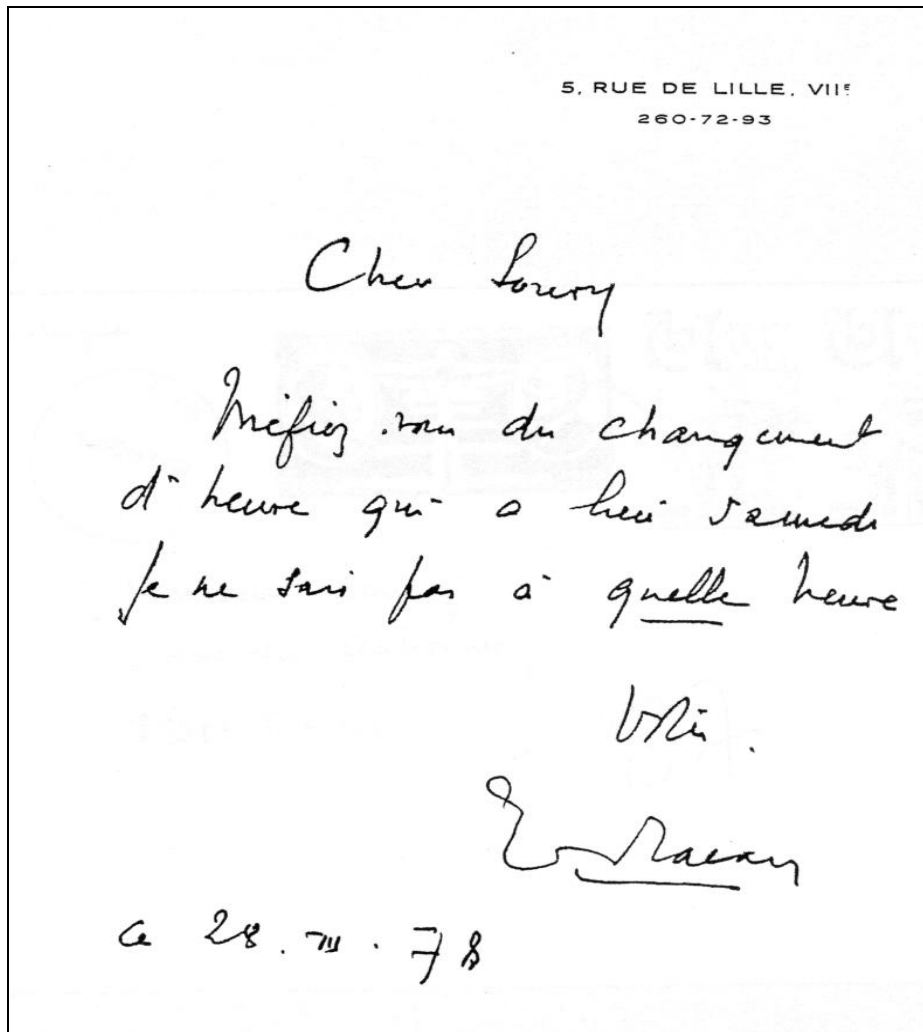 5, RUE DE LILLE, VIIᵉ
260-72-93
Cher Soury
Méfiez-vous du changement
d'heure qui a lieu samedi
Je ne sais pas à quelle heure
Vôtre.
J. Lacan
ce 28. III. 78